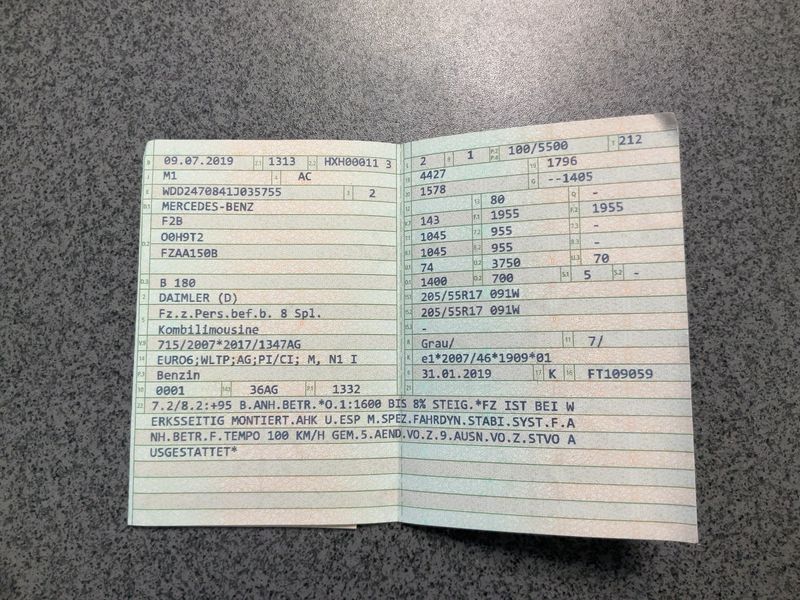 B 09.07.2019 2.1 1313 2.2 HXH00011 3
J M1 4 AC
E WDD2470841J035755 3 2
D.1 MERCEDES-BENZ
F2B
D.2 O0H9T2
FZAA150B
D.3 B 180
2 DAIMLER (D)
5 Fz.z.Pers.bef.b. 8 Spl.
Kombilimousine
V.9 715/2007*2017/1347AG
14 EURO6;WLTP;AG;PI/CI; M, N1 I
P.3 Benzin
10 0001 14.1 36AG P.1 1332
22 7.2/8.2:+95 B.ANH.BETR.*O.1:1600 BIS 8% STEIG.*FZ IST BEI W
ERKSSEITIG MONTIERT.AHK U.ESP M.SPEZ.FAHRDYN.STABI.SYST.F.A
NH.BETR.F.TEMPO 100 KM/H GEM.5.AEND.VO.Z.9.AUSN.VO.Z.STVO A
USGESTATTET*
L 2 9 1 P.2 P.4 100/5500 T 212
18 4427 19 1796
20 1578 G --1405
12 - 13 80 Q -
V.7 143 F.1 1955 F.2 1955
7.1 1045 7.2 955 7.3 -
8.1 1045 8.2 955 8.3 -
U.1 74 U.2 3750 U.3 70
O.1 1400 O.2 700 S.1 5 S.2 -
15.1 205/55R17 091W
15.2 205/55R17 091W
15.3 -
R Grau/ 11 7/
K e1*2007/46*1909*01
6 31.01.2019 17 K 16 FT109059
21